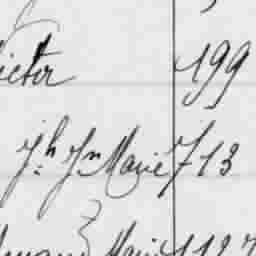 Victor 199
Jh Jn Marie 713
Marie 1127